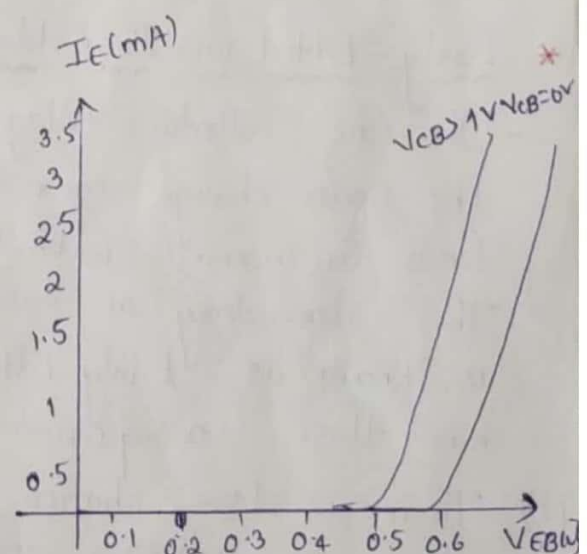 IE(mA)
*
VCB> 1V VCB=0V
3.5
3
2.5
2
1.5
1
0.5
0.1 0.2 0.3 0.4 0.5 0.6 VEB(V)